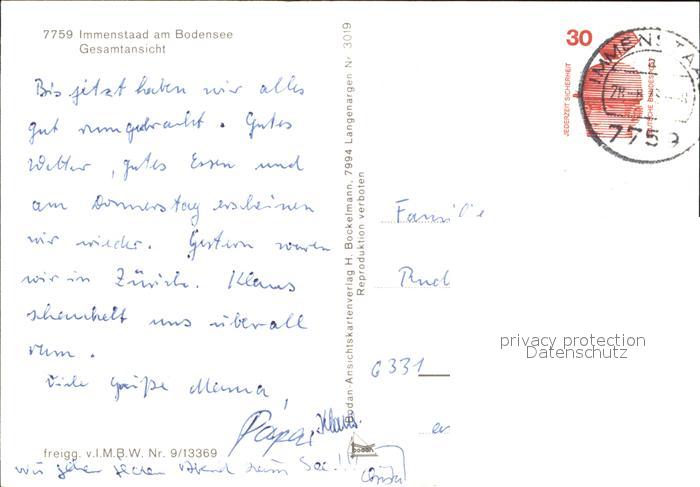 7759 Immenstaad am Bodensee
Gesamtansicht
Bis jetzt haben wir alles
gut rumgebracht. Gutes
Wetter, gutes Essen und
am Donnerstag erscheinen
wir wieder. Gestern waren
wir in Zürich. Klaus
schaukelt uns überall
rum.
Viele Grüße Mama,
Papa, Klaus.
wir gehen jeden Abend zum See!!
freigg. v.I.M.B.W. Nr. 9/13369
Bodan-Ansichtskartenverlag H. Bockelmann, 7994 Langenargen Nr. 3019
Reproduktion verboten
bodan
30
JEDERZEIT SICHERHEIT
DEUTSCHE BUNDESPOST
IMMENSTAA
7759
Familie
Rud
6331
privacy protection
Datenschutz